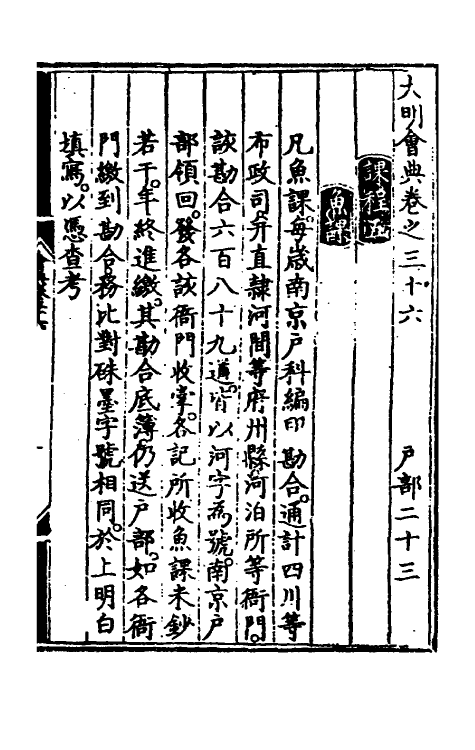 大明會典卷之三十六 戶部二十三
課程五
魚課
凡魚課。每歲南京戶科編印勘合。通計四川等
布政司。并直隸河間等府州縣河泊所等衙門。
該勘合六百八十九道。皆以河字爲號。南京戶
部領回。發各該衙門收掌。各記所收魚課米鈔
若干。年終進繳。其勘合底簿。仍送戶部。如各衙
門繳到勘合。務比對硃墨字號相同。於上明白
填寫。以憑查考